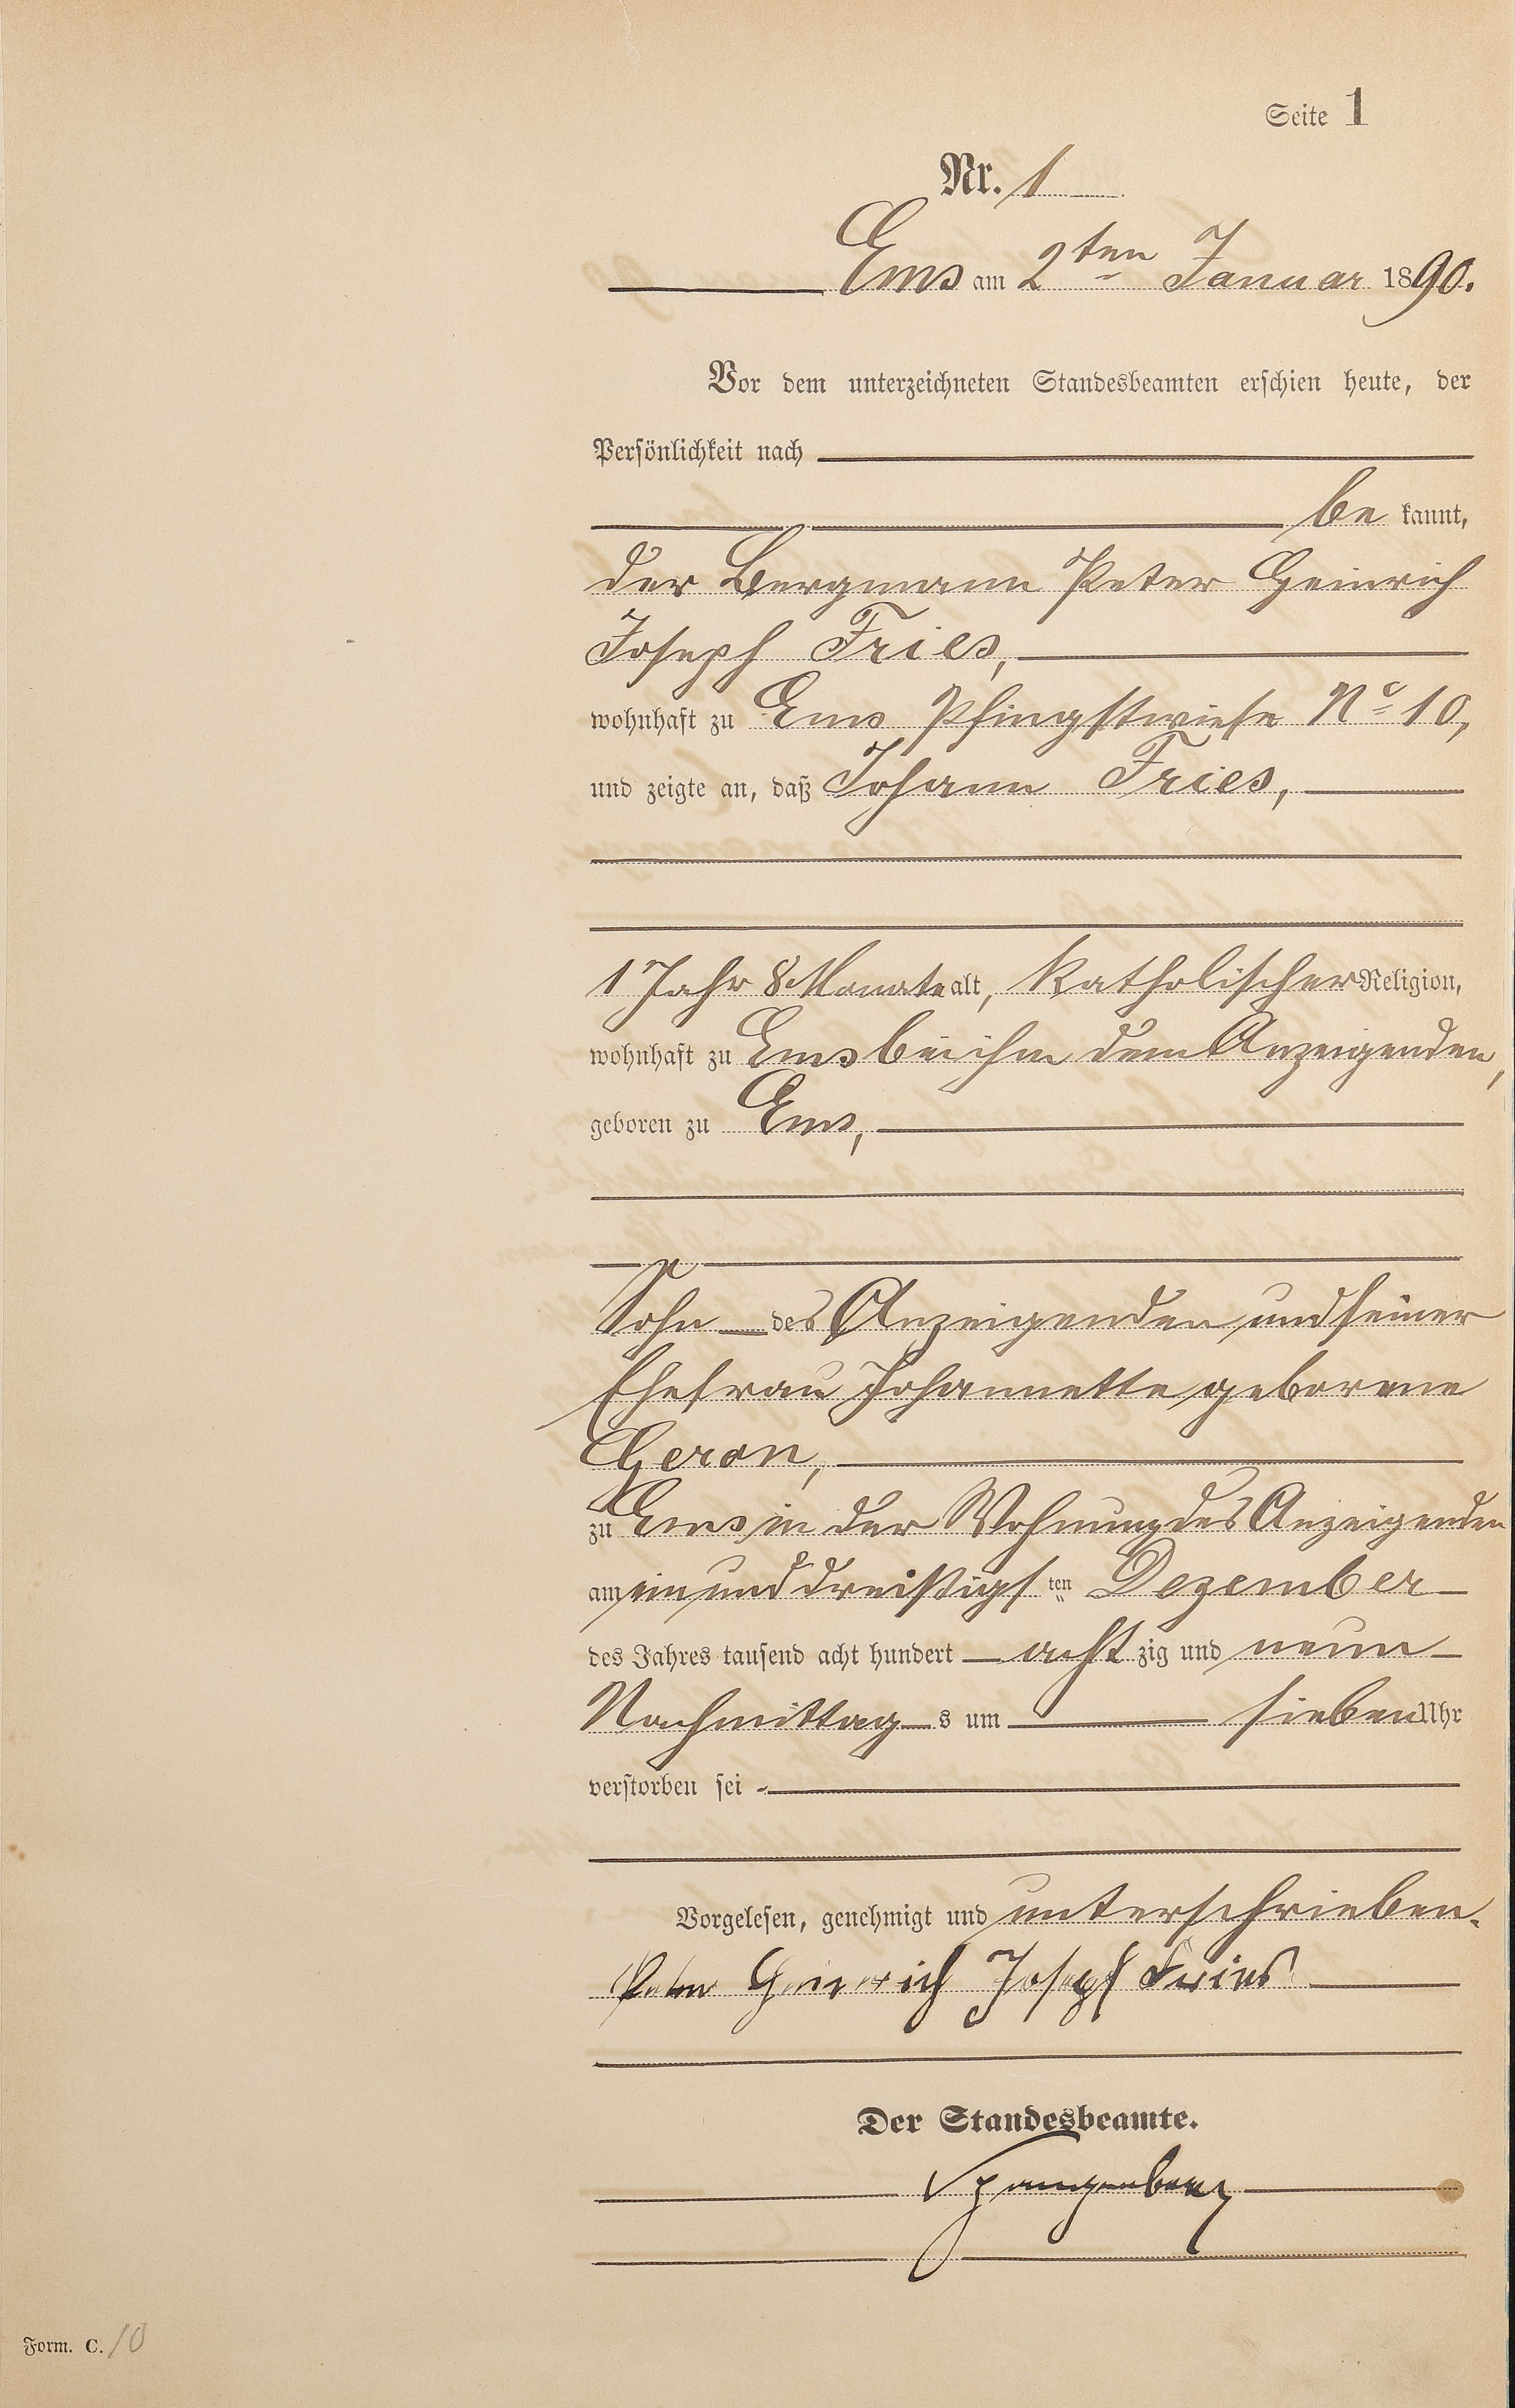 Seite 1
Nr. 1
Ems am 2ten Januar 1890.
Vor dem unterzeichneten Standesbeamten erschien heute, der
Persönlichkeit nach
be kannt,
der Bergmann Peter Heinrich
Joseph Fries,
wohnhaft zu Ems Pfingstwiese No 10,
und zeigte an, daß Johann Fries,
1 Jahr 8 Monate alt, katholischer Religion,
wohnhaft zu Ems bei ihm dem Anzeigenden,
geboren zu Ems,
Sohn des Anzeigenden und seiner
Ehefrau Johannette geborene
Geron,
zu Ems in der Wohnung des Anzeigenden
am ein und dreißigsten Dezember
des Jahres tausend acht hundert achtzig und neun
Nachmittags um sieben Uhr
verstorben sei
Vorgelesen, genehmigt und unterschrieben.
Peter Heinrich Joseph Fries
Der Standesbeamte.
Spangenberg
Form. C. 10